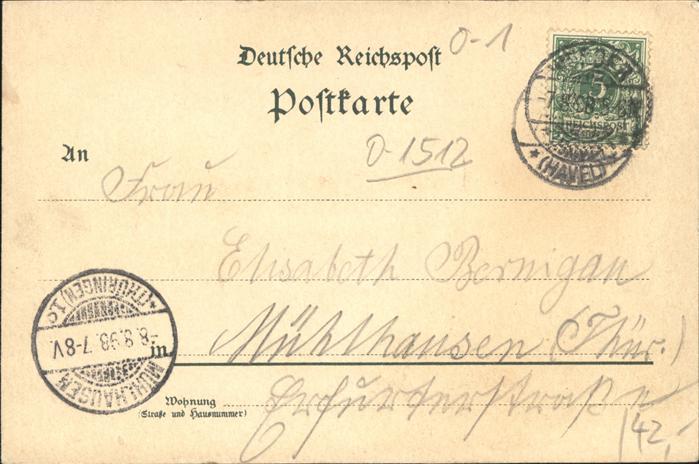 Deutsche Reichspost
Postkarte
O-1
O-1512
An
Frau
Elisabeth Bernigau
in Mühlhausen (Thür.)
Erfurterstraße
Wohnung
(Straße und Hausnummer)
42,-
5
REICHSPOST
7.8.98
* (HAVEL) *
MÜHLHAUSEN
8.8.98.7-8V.
*(THÜRINGEN) 1c